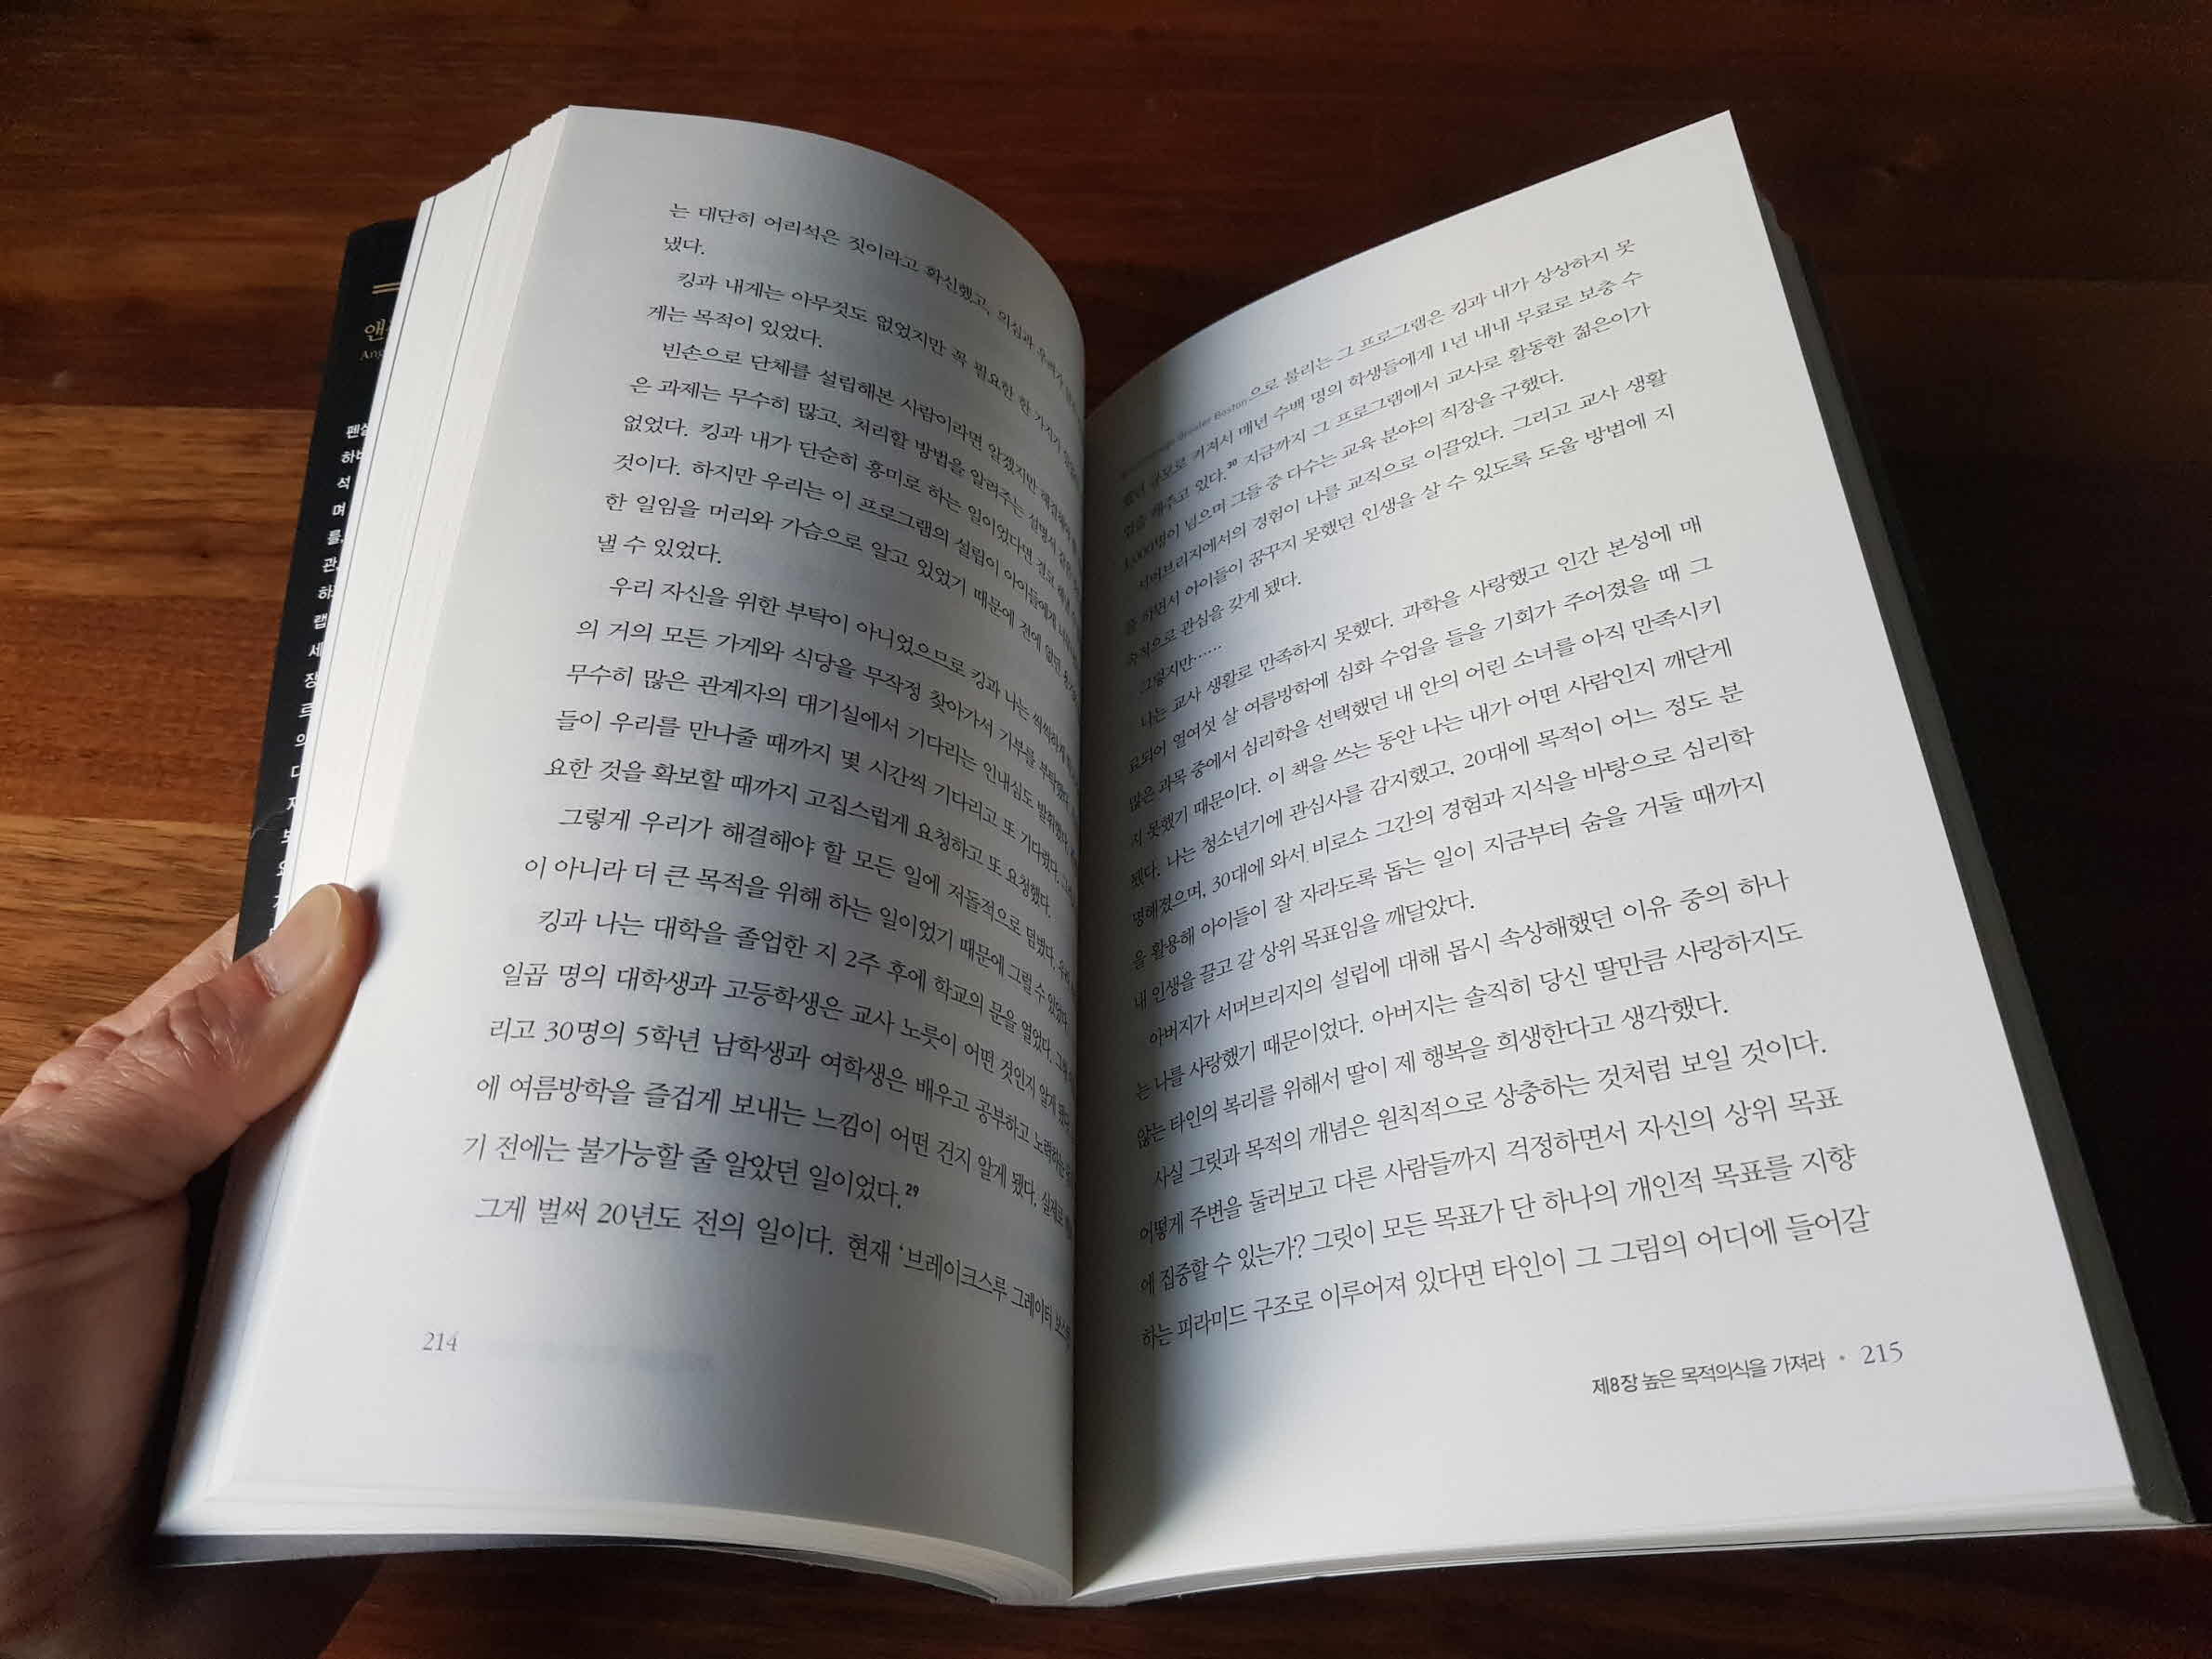 앤
Ang
펜실
하
석
며
를,
관
하
랩
세
장
르
의
는 대단히 어리석은 짓이라고 확신했고, 의심과
냈다.
킹과 내게는 아무것도 없었지만 꼭 필요한 한 가지가
게는 목적이 있었다.
빈손으로 단체를 설립해본 사람이라면 알겠지만 해결해야
은 과제는 무수히 많고, 처리할 방법을 알려주는 설명서 같은
없었다. 킹과 내가 단순히 흥미로 하는 일이었다면 결코
것이다. 하지만 우리는 이 프로그램의 설립이 아이들에게
한 일임을 머리와 가슴으로 알고 있었기 때문에 전에 없던
낼 수 있었다.
우리 자신을 위한 부탁이 아니었으므로 킹과 나는 씩씩하게
의 거의 모든 가게와 식당을 무작정 찾아가서 기부를 부탁했다.
무수히 많은 관계자의 대기실에서 기다리는 인내심도 발휘했다.
들이 우리를 만나줄 때까지 몇 시간씩 기다리고 또 기다렸다.
요한 것을 확보할 때까지 고집스럽게 요청하고 또 요청했다.
그렇게 우리가 해결해야 할 모든 일에 저돌적으로 덤볐다.
이 아니라 더 큰 목적을 위해 하는 일이었기 때문에 그럴 수 있었다.
킹과 나는 대학을 졸업한 지 2주 후에 학교의 문을 열었다.
일곱 명의 대학생과 고등학생은 교사 노릇이 어떤 것인지 알게 됐다.
리고 30명의 5학년 남학생과 여학생은 배우고 공부하고 노력하는
에 여름방학을 즐겁게 보내는 느낌이 어떤 건지 알게 됐다. 실제로
기 전에는 불가능할 줄 알았던 일이었다.29
그게 벌써 20년도 전의 일이다. 현재 ‘브레이크스루 그레이터 보스턴
214
Greater Boston으로 불리는 그 프로그램은 킹과 내가 상상하지 못
했던 규모로 커져서 매년 수백 명의 학생들에게 1년 내내 무료로 보충 수
업을 해주고 있다.30 지금까지 그 프로그램에서 교사로 활동한 젊은이가
1,000명이 넘으며 그들 중 다수는 교육 분야의 직장을 구했다.
서머브리지에서의 경험이 나를 교직으로 이끌었다. 그리고 교사 생활
을 하면서 아이들이 꿈꾸지 못했던 인생을 살 수 있도록 도울 방법에 지
속적으로 관심을 갖게 됐다.
그렇지만……
나는 교사 생활로 만족하지 못했다. 과학을 사랑했고 인간 본성에 매
료되어 열여섯 살 여름방학에 심화 수업을 들을 기회가 주어졌을 때 그
많은 과목 중에서 심리학을 선택했던 내 안의 어린 소녀를 아직 만족시키
지 못했기 때문이다. 이 책을 쓰는 동안 나는 내가 어떤 사람인지 깨닫게
됐다. 나는 청소년기에 관심사를 감지했고, 20대에 목적이 어느 정도 분
명해졌으며, 30대에 와서 비로소 그간의 경험과 지식을 바탕으로 심리학
을 활용해 아이들이 잘 자라도록 돕는 일이 지금부터 숨을 거둘 때까지
내 인생을 끌고 갈 상위 목표임을 깨달았다.
아버지가 서머브리지의 설립에 대해 몹시 속상해했던 이유 중의 하나
는 나를 사랑했기 때문이었다. 아버지는 솔직히 당신 딸만큼 사랑하지도
않는 타인의 복리를 위해서 딸이 제 행복을 희생한다고 생각했다.
사실 그릿과 목적의 개념은 원칙적으로 상충하는 것처럼 보일 것이다.
어떻게 주변을 둘러보고 다른 사람들까지 걱정하면서 자신의 상위 목표
에 집중할 수 있는가? 그릿이 모든 목표가 단 하나의 개인적 목표를 지향
하는 피라미드 구조로 이루어져 있다면 타인이 그 그림의 어디에 들어갈
제8장 높은 목적의식을 가져라 • 215